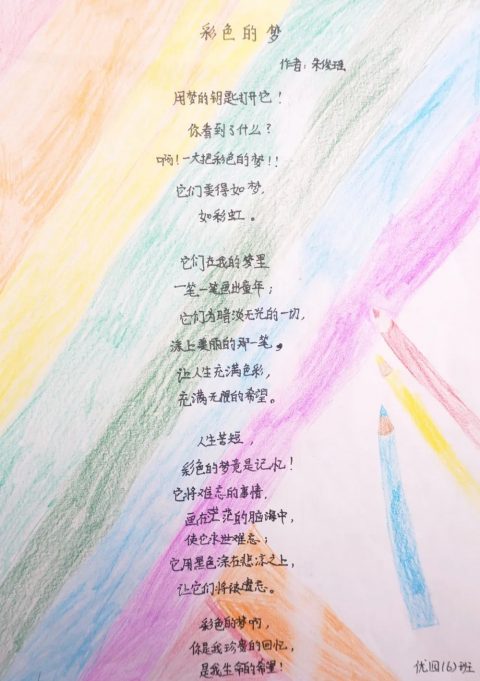 彩色的梦
作者：朱俊瑶
用梦的钥匙打开它！
你看到了什么？
啊！一大把彩色的梦！！
它们美得如梦，
如彩虹。
它们在我的梦里
一笔一笔画出童年；
它们为暗淡无光的一切，
添上美丽的那一笔，
让人生充满色彩，
充满无限的希望。
人生苦短，
彩色的梦竟是记忆！
它将难忘的事情，
画在茫茫的脑海中，
使它永世难忘；
它用黑色涂在悲凉之上，
让它们将被遗忘。
彩色的梦啊，
你是我珍贵的回忆，
是我生命的希望！
优四(6)班